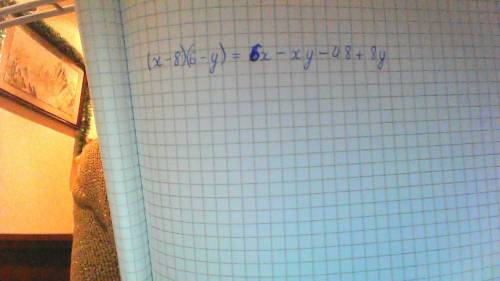 (x-8)(6-y) = 6x - xy - 48 + 8y